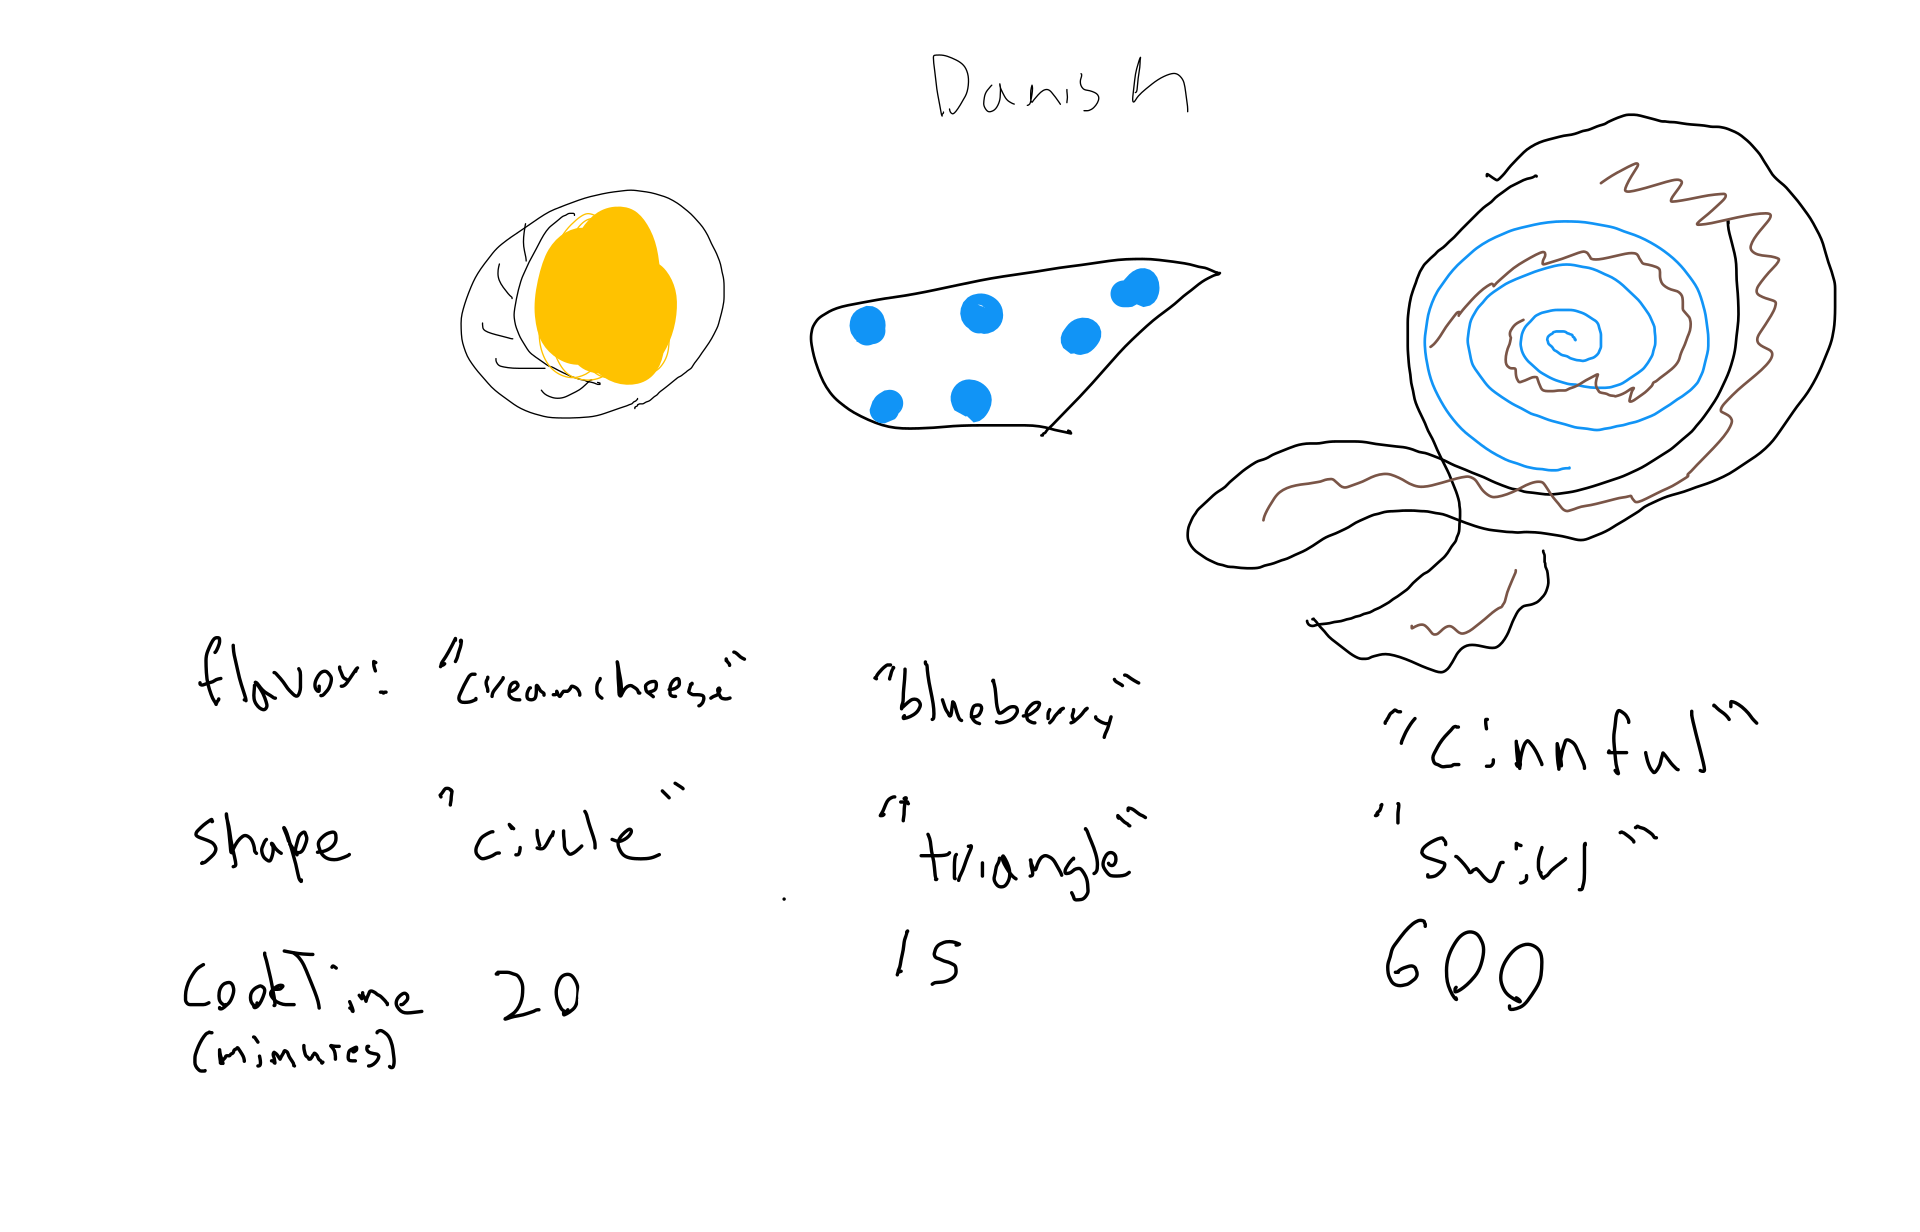 Danish
flavor: "creamcheese" "blueberry" "cinnful"
shape "circle" "triangle" "swirl"
CookTime 20 15 600
(minutes)